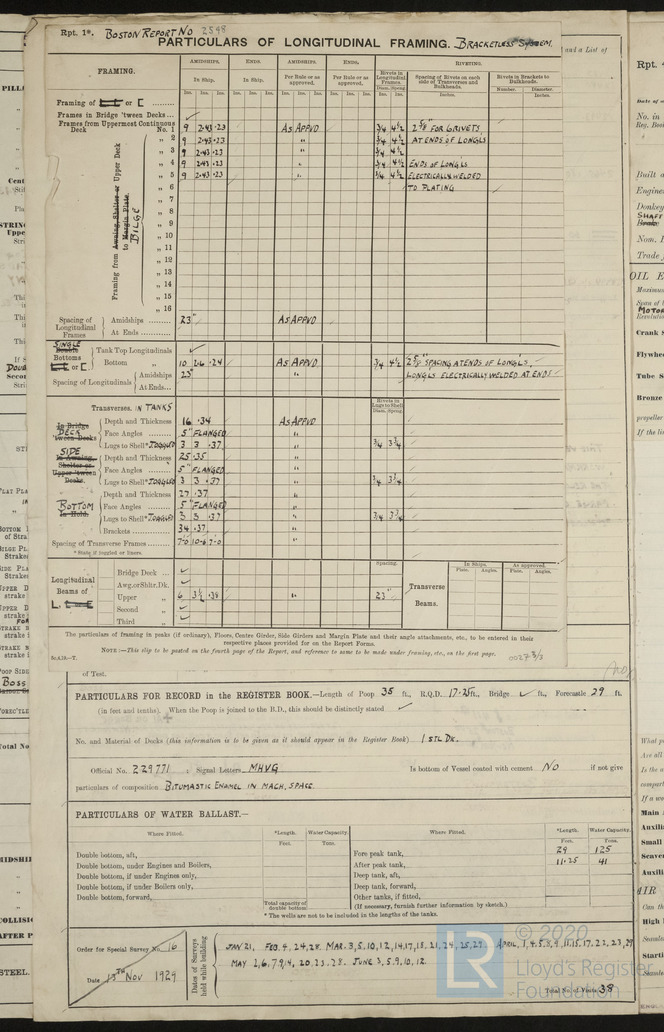 Rpt. 1*. BOSTON REPORT NO 2598
PARTICULARS OF LONGITUDINAL FRAMING. BRACKETLESS SYSTEM.
FRAMING. AMIDSHIPS. ENDS. AMIDSHIPS. ENDS. Rivets in Longitudinal Frames RIVETING.
In Ship. In Ship. Per Rule or as approved. Per Rule or as approved. Spacing of Rivets on each side of Transverses and Bulkheads. Rivets in Brackets to Bulkheads.
Ins. Ins. Ins. Ins. Ins. Ins. Ins. Ins. Ins. Ins. Ins. Ins. Diam. Spcng Inches. Number. Diameter.
Framing of
Frames in Bridge 'tween Decks... ✓
Frames from Uppermost Continuous
Deck No. 1 9 2·43 ·23 AS APPVD 3/4 4½ 2⅝" FOR 6 RIVETS
„ 2 9 2·43 ·23 „ 3/4 4½ AT ENDS OF LONGLS
„ 3 9 2·43 ·23 „ 3/4 4½
„ 4 9 2·43 ·23 „ 3/4 4½ ENDS OF LONGLS
„ 5 9 2·43 ·23 „ 3/4 4½ ELECTRICALLY WELDED
„ 6 TO PLATING
„ 7
„ 8
„ 9
„ 10
„ 11
„ 12
„ 13
„ 14
„ 15
„ 16
Framing from Awning, Shelter or Upper Deck
to Margin Plate.
BILGE
Spacing of Longitudinal Frames Amidships ......... 23" AS APPVD
At Ends ............
SINGLE
Double Bottoms Tank Top Longitudinals ✓
Bottom „ 10 2·6 ·24 AS APPVD 3/4 4½ 2⅝" SPACING AT ENDS OF LONGLS.
Spacing of Longitudinals Amidships 23" „ LONGLS ELECTRICALLY WELDED AT ENDS
At Ends...
Transverses. IN TANKS Rivets in Lugs to Shell
Diam. Spcng.
In Bridge 'tween Decks DECK Depth and Thickness 16 ·34 AS APPVD
Face Angles 5" FLANGED „
Lugs to Shell* JOGGLED 3 3 ·37 „ 3/4 3¾
SIDE Depth and Thickness 25 ·35 „
In Awning, Shelter or Upper 'tween Decks. Face Angles 5" FLANGED „
Lugs to Shell* JOGGLED 3 3 ·37 „ 3/4 3¾
Depth and Thickness 27 ·37 „
BOTTOM Face Angles 5" FLANGED „
In Hold. Lugs to Shell* JOGGLED 3 3 ·37 „ 3/4 3¾
Brackets 34 ·37 „
Spacing of Transverse Frames 7-0 10-6 7-0 „
* State if joggled or liners.
Longitudinal Beams of Bridge Deck ... ✓ Spacing. Transverse Beams. In Ships. As approved.
Plate. Angles. Plate. Angles.
Awg. or Shltr. Dk. ✓
Upper „ 6 3½ ·38 „ 23"
Second „ ✓
Third „ ✓
The particulars of framing in peaks (if ordinary), Floors, Centre Girder, Side Girders and Margin Plate and their angle attachments, etc., to be entered in their
respective places provided for on the Report Forms.
NOTE:—This slip to be posted on the fourth page of the Report, and reference to same to be made under framing, etc., on the first page.
of Test.
PARTICULARS FOR RECORD in the REGISTER BOOK.—Length of Poop 35 ft., R.Q.D. 17·25 ft., Bridge ✓ ft., Forecastle 29 ft.
(in feet and tenths). When the Poop is joined to the B.D., this should be distinctly stated ✓
No. and Material of Decks (this information is to be given as it should appear in the Register Book) 1 STL DK.
Official No. 229771 ; Signal Letters MHVG Is bottom of Vessel coated with cement NO if not give
particulars of composition BITUMASTIC ENAMEL IN MACH. SPACE.
PARTICULARS OF WATER BALLAST.—
Where Fitted. *Length. Water Capacity. Where Fitted. *Length. Water Capacity.
Feet. Tons. Feet. Tons.
Double bottom, aft, Fore peak tank, 29 125
Double bottom, under Engines and Boilers, After peak tank, 11·25 41
Double bottom, if under Engines only, Deep tank, aft,
Double bottom, if under Boilers only, Deep tank, forward,
Double bottom, forward, Other tanks, if fitted,
Total capacity of double bottom (If necessary, furnish further information by sketch.)
* The wells are not to be included in the lengths of the tanks.
Order for Special Survey No. 16
Date 13TH NOV 1929
Dates of Surveys held while building
JAN 21, FEB. 4, 24, 28. MAR. 3, 5, 10, 12, 14, 17, 18, 21, 24, 25, 29. APRIL, 1, 4, 5, 8, 9, 11, 15, 17, 21, 23, 29
MAY 2, 6, 7, 9, 4, 20, 23, 28. JUNE 3, 5, 9, 10, 12.
Total No. of Visits 38
© 2020
LR
Lloyd's Register
Foundation